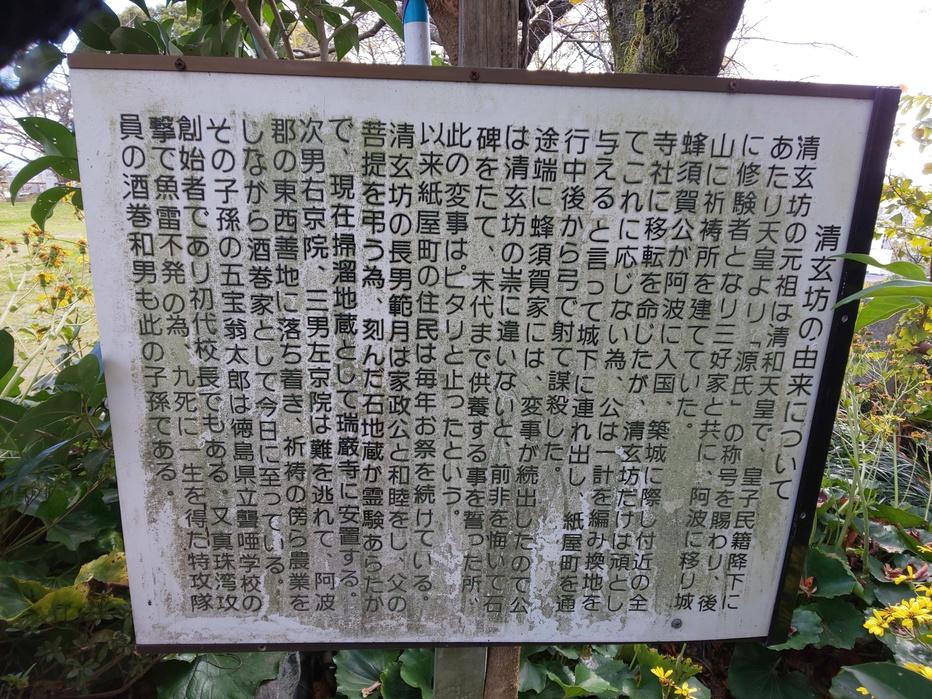 清玄坊の由来について
清玄坊の元祖は清和天皇で、皇子民籍降下に
あたり天皇より「源氏」の称号を賜わり、後
に修験者となり三好家と共に、阿波に移り城
山に祈祷所を建てていた。
蜂須賀公が阿波に入国、築城に際し付近の全
寺社に移転を命じたが、清玄坊だけは頑とし
てこれに応じない為、公は一計を編み換地を
与えると言って城下に連れ出し、紙屋町を通
行中後から弓で射て謀殺した。
途端に蜂須賀家には、変事が続出したので公
は清玄坊の祟に違いないと、前非を悔いて石
碑をたて、末代まで供養する事を誓った所、
此の変事はピタリと止ったという。
以来紙屋町の住民は毎年お祭を続けている
清玄坊の長男範月は家政公と和睦をし、父の
菩提を弔う為、刻んだ石地蔵が霊験あらたか
で、現在掃溜地蔵として瑞巌寺に安置する。
次男右京院、三男左京院は難を逃れて、阿波
郡の東西善地に落ち着き、祈祷の傍ら農業を
しながら酒巻家として今日に至っている。
その子孫の五宝翁太郎は徳島県立聾唖学校の
創始者であり初代校長でもある。又真珠湾攻
撃で魚雷不発の為、九死に一生を得た特攻隊
員の酒巻和男も此の子孫である。